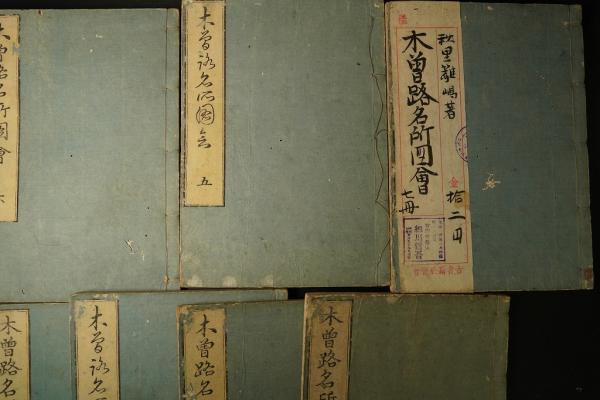 秋里離嶋著
木曽路名所圖會
七冊
金
拾二円
木曽路名所圖會
五
木曽路名所圖會
六
木曽路名所
木曽路名
木曽路名
木曽路名